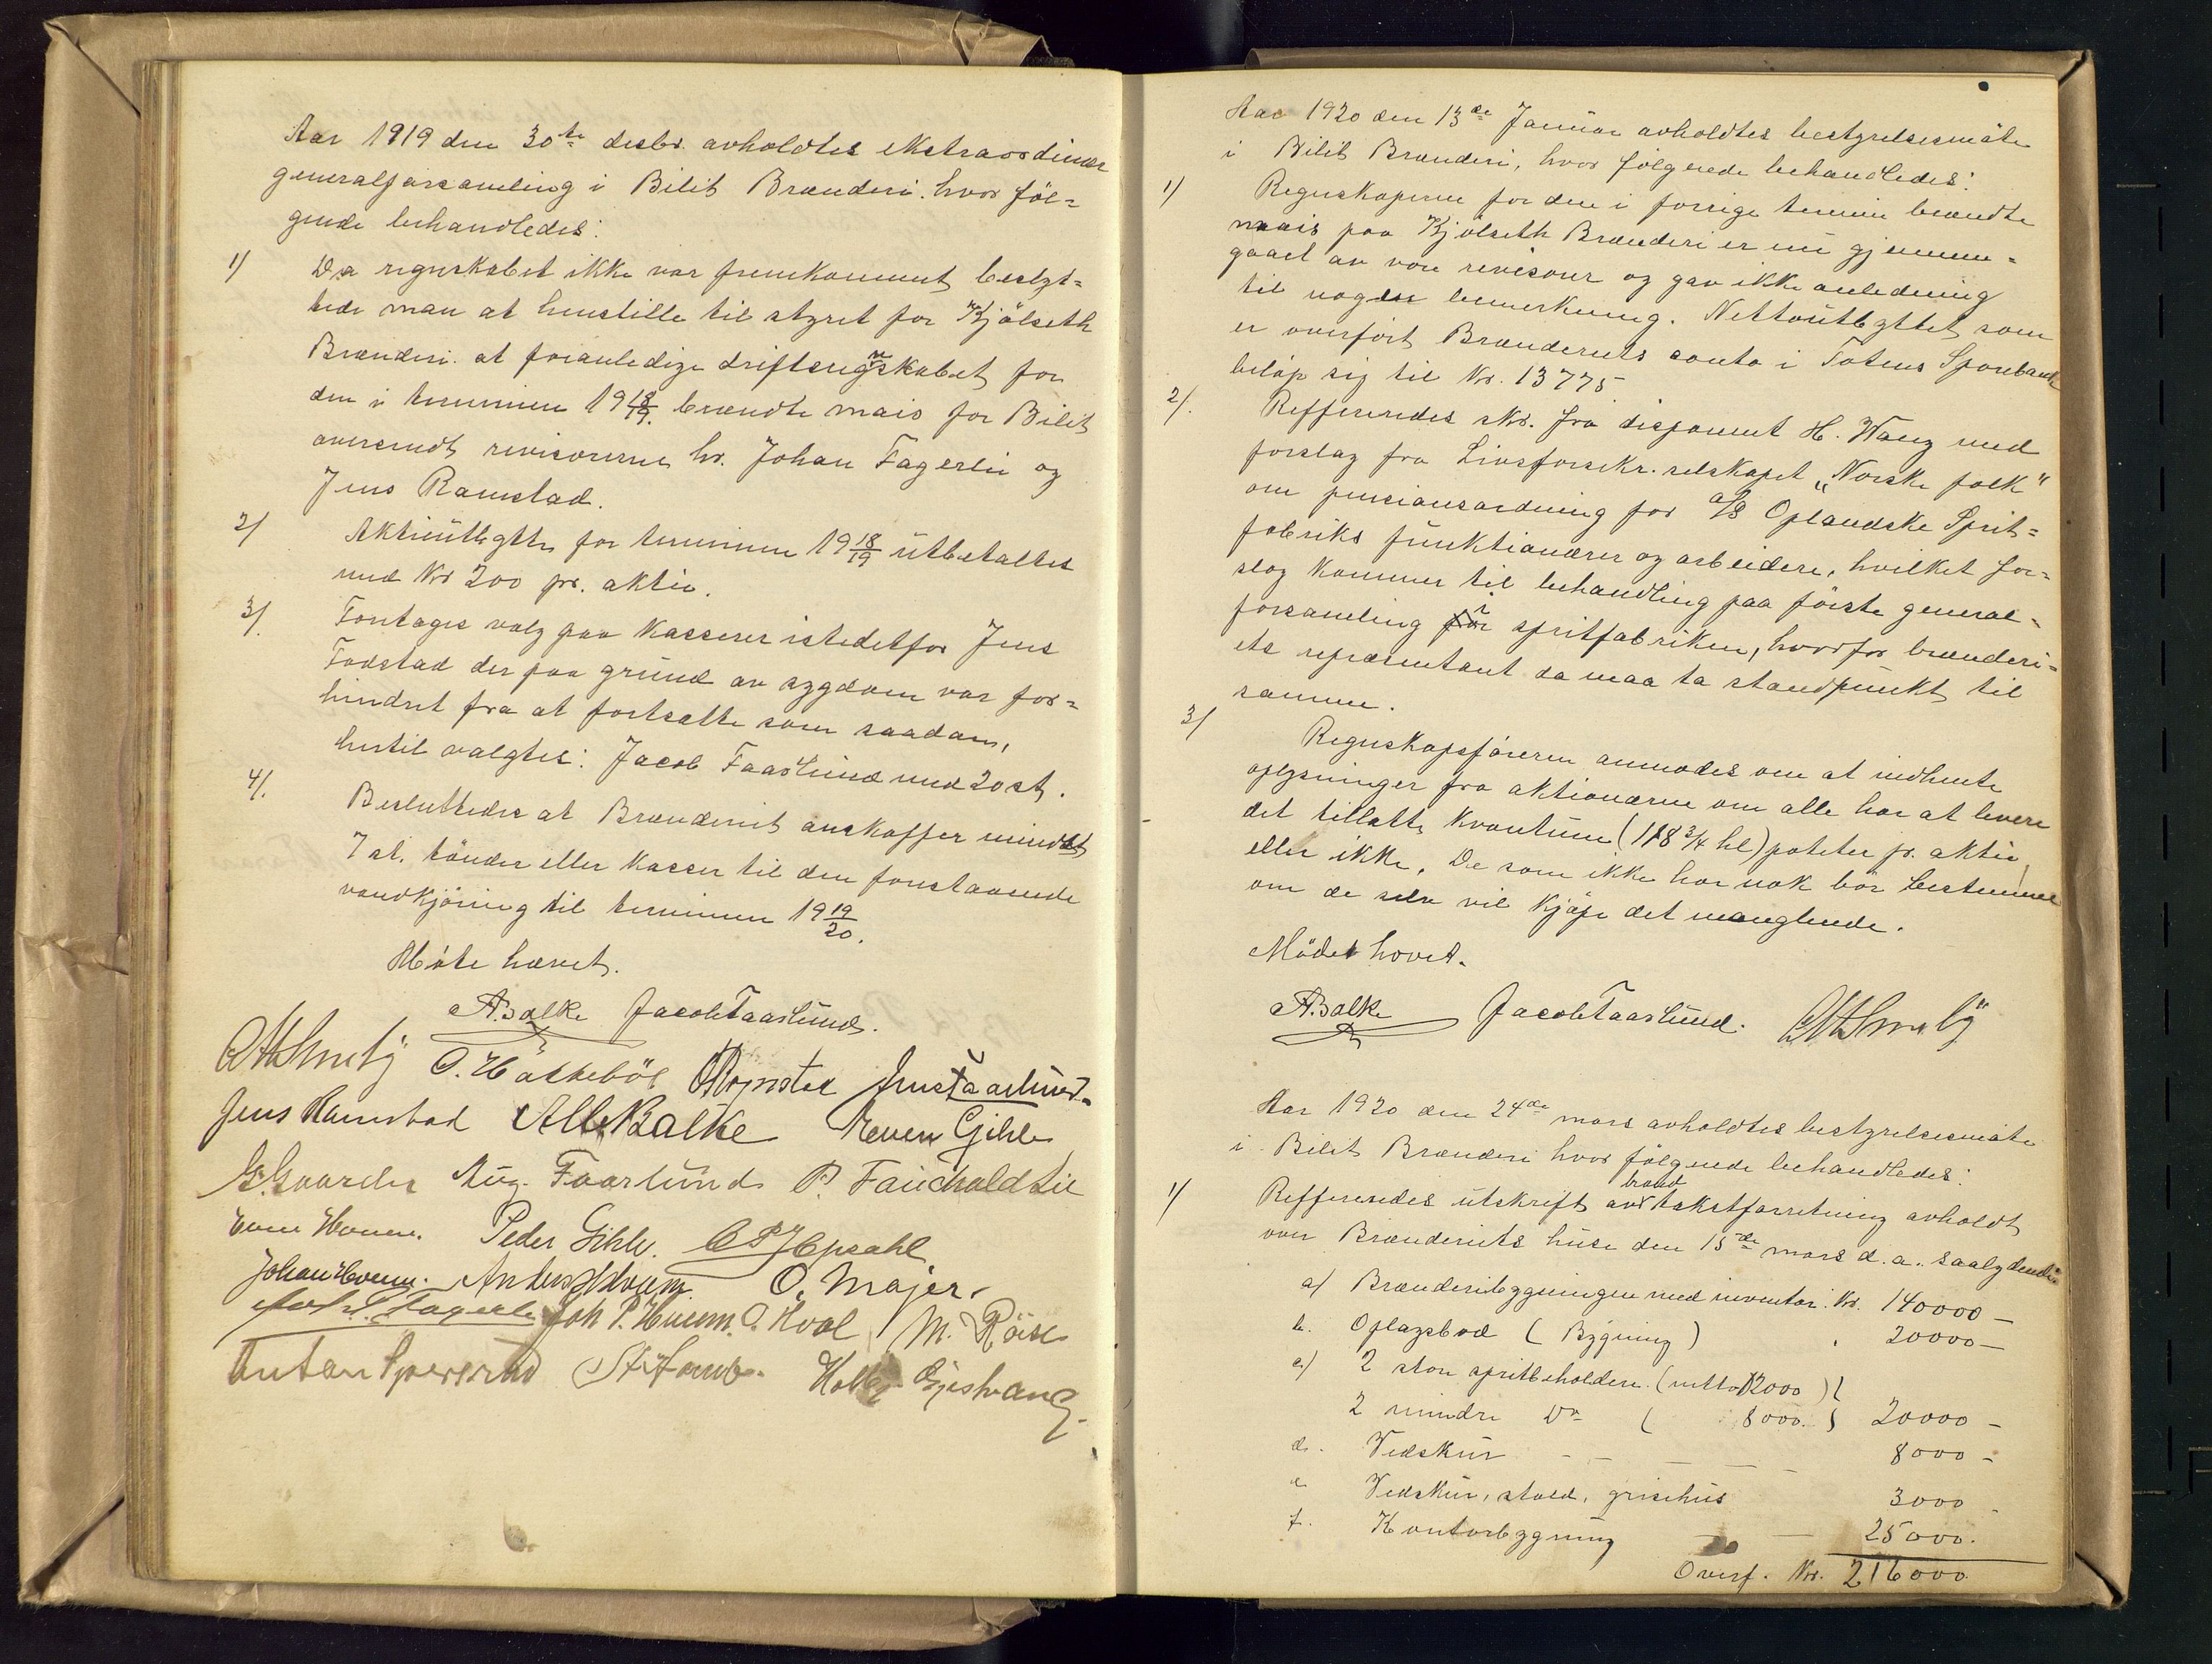 Aar 1919 den 30te desbr. avholdtes ekstraordinær
generalforsamling i Bilit Brænderi. hvor föl=
gende behandledes:
1) Da regnskabet ikke var fremkommet beslyt=
tede man at henstille til styret for Kjölseth
Brænderi. at foranledige driftsregnskabet for
den i terminen 19 18/19. brændte mais for Bilit
oversendt revisorerne hr. Johan Fagerlie og
Jens Ramstad.
2) Aktieutbyttet for terminen 19 18/19 utbetaltes
med Kr 200 pr. aktie.
3) Foretages valg paa Kasserer istedetfor Jens
Fodstad der paa grund av sygdom var for=
hindret fra at fortsætte som saadan,
hertil valgtes: Jacob Faarlund med 20 st.
4) Besluttedes at Brænderiet anskaffer mindst
7 st. tönder eller Kasser til den forestaaende
vandkjöring til terminen 19 19/20.
Möte hævet.
A. Balke Jacob Faarlund.
O. Häkkeböl Jens Faarlund.
Jens Ramstad Alb. Balke Even Gihle
G. Gaarder Aug. Faarlund P. Fauchald Lie
Even Hveem. Peder Gihle. C P Hepsahl
Johan Hveem. O. Majer.
Joh P. Hveem. O. Hval M. Röise
Anton Sperrerud Gjestvang.
Aar 1920 den 13de Januar avholdtes bestyrelsesmöte
i Bilit Brænderi, hvor fölgende behandledes:
1) Regnskaperne for den i forrige termin brændte
mais paa Kjölseth Brænderi er nu gjennem=
gaaet av vore revisorer og gav ikke anledning
til nogen bemerkning. Nettoutbyttet som
er overfört Brænderiets conto i Totens Sparebank
belöp sig til Kr. 13775
2) Reffereredes skr. fra disponent H. Wang med
forslag fra Livsforsikr. selskapet „Norske folk"
om pensionsordning for a/s Oplandske Sprit=
fabriks funktionærer og arbeidere, hvilket for=
slag kommer til behandling paa förste general=
forsamling i spritfabriken, hvorfor brænderi=
ets repræsentant da maa ta standpunkt til
samme.
3) Regnskapsföreren anmodes om at indhente
oplysninger fra aktionærerne om alle har at levere
det tillatte kvantum (118 3/4 hl) poteter pr. aktie
eller ikke. De som ikke har nok bör bestemme
om de selv vil kjöpe det manglende.
Mödet hævet.
A. Balke Jacob Faarlund.
Aar 1920 den 24de mars avholdtes bestyrelsesmöte
i Bilit Brænderi hvor fölgende behandledes:
1) Reffereredes utskrift av brandtakstforretning avholdt
over Brænderiets huse den 15de mars d.a. saalydende:
a) Brænderibygningen med inventar. Kr. 140000 —
b. Oplagsbod (Bygning) 20000 —
c) 2 store spritbeholdere. (netto 12000)
2 mindre Do ( 8000.) 20000 —
d. Vedskur — — — — 8000 —
e Vedskur, stald, grisehus 3000 —
f. Kontorbygning — — 25000.
Overf. Kr. 216000